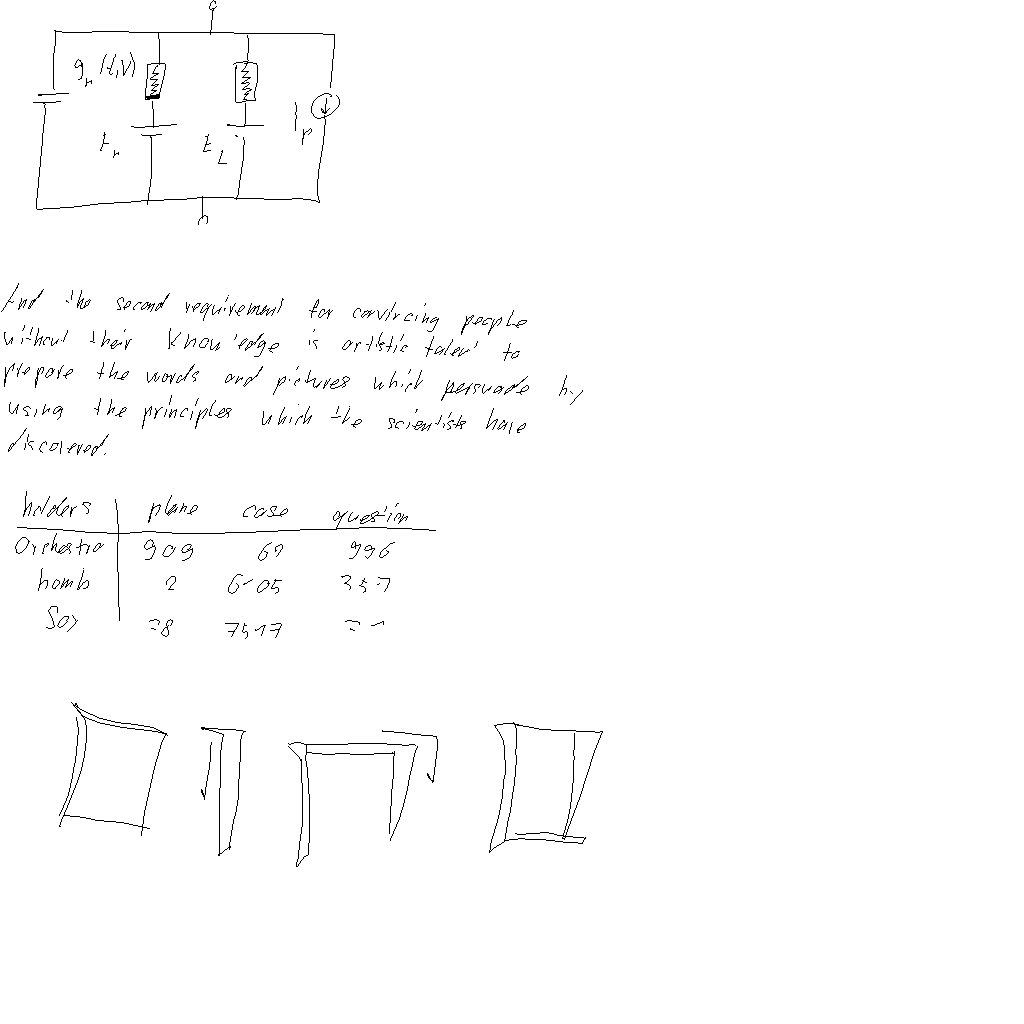 g_n (t,V)
E_n
E_L
I_p
And the second requirement for convincing people
without their knowledge is artistic talent to
prepare the words and pictures which persuade by
using the principles which the scientists have
discovered.
holders plane case question
Orchestra 909 996
homb 2 357
Soy